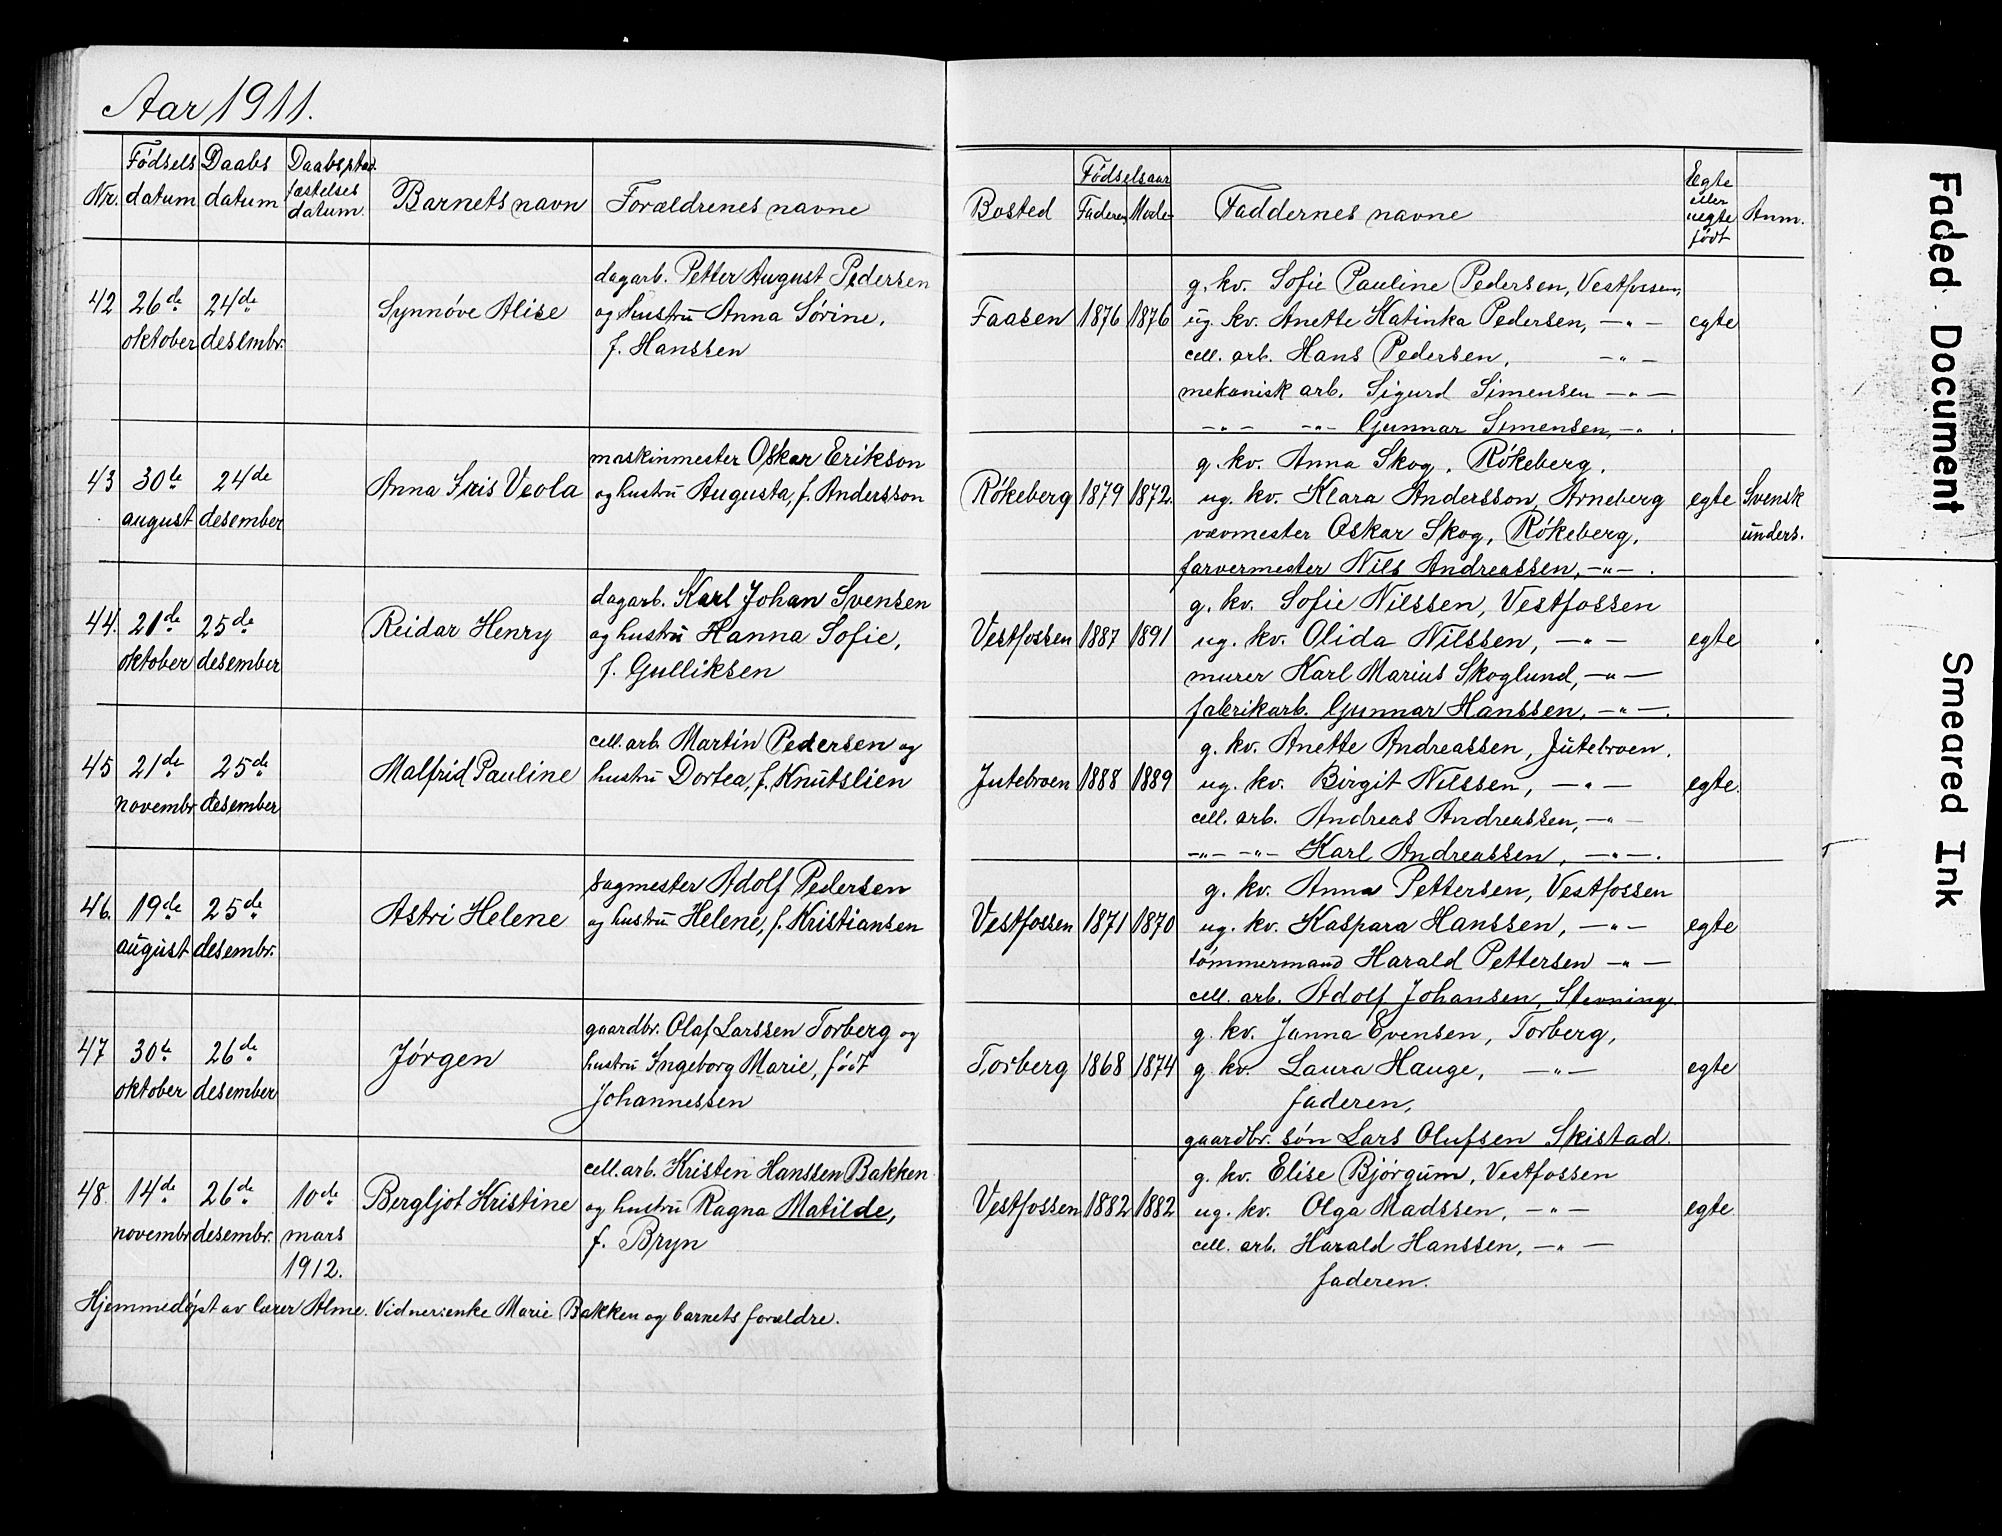 Aar 1911.
Nr. Fødsels datum Daabs datum Daabsstadfæstelses datum. Barnets navn Forældrenes navne Bosted Fødselsaar Faderen Moder Faddernes navne Egte eller uegte født Anm.
42 26de oktober 24de desembr. Synnøve Alise
dagarb. Petter August Pedersen
og hustru Anna Sørine,
f. Hanssen
Faasen 1876 1876
g. kv. Sofie Pauline Pedersen, Vestfossen,
ug. kv. Anette Katinka Pedersen, —"—
cell. arb. Hans Pedersen, —"—
mekanisk arb. Sigurd Simensen —"—
—"— —"— Gunnar Simensen, —"—.
egte
43 30te august 24de desember Anna Iris Veola
maskinmester Oskar Erikson
og hustru Augusta, f. Andersson
Røkeberg 1879 1872.
g. kv. Anna Skog, Røkeberg,
ug. kv. Klara Andersson, Arneberg
vævmester Oskar Skog, Røkeberg,
farvermester Nils Andreassen, —"—.
egte Svensk unders.
44. 21de oktober 25de desember Reidar Henry
dagarb. Karl Johan Svensen
og hustru Hanna Sofie,
f. Gulliksen
Vestfossen 1887 1891
g. kv. Sofie Nilssen, Vestfossen
ug. kv. Olida Nilssen, —"—
murer Karl Marius Skoglund, —"—
fabrikarb. Gunnar Hanssen, —"—.
egte
45 21de novembr 25de desember Malfrid Pauline
cell. arb. Martin Pedersen og
hustru Dortea, f. Knutslien
Jutebroen 1888 1889
g. kv. Anette Andreassen, Jutebroen,
ug. kv. Birgit Nilssen, —"—
cell. arb. Andreas Andreassen, —"—
—"— —"— Karl Andreassen, —"—.
egte.
46. 19de august 25de desembr. Astri Helene
sagmester Adolf Pedersen
og hustru Helene, f. Kristiansen
Vestfossen 1871 1870
g. kv. Anna Pettersen, Vestfossen
ug. kv. Kaspara Hanssen, —"—
tømmermand Harald Pettersen —"—
cell. arb. Adolf Johansen, Stevning
egte
47 30te oktober 26de desember Jørgen
gaardbr. Olaf Larssen Torberg og
hustru Ingeborg Marie, født
Johannessen
Torberg 1868 1874
g. kv. Janna Evensen, Torberg,
g. kv. Laura Hauge, —"—
faderen,
gaardbr. søn Lars Olufsen Skistad.
egte
48. 14de novembr 26de desembr. 10de mars 1912. Bergljot Kristine
cell. arb. Kristen Hanssen Bakken
og hustru Ragna Matilde,
f. Bryn
Vestfossen 1882 1882
g. kv. Elise Bjørgum, Vestfossen
ug. kv. Olga Madssen, —"—
cell. arb. Harald Hanssen, —"—
faderen.
egte
Hjemmedøpt av lærer Alme. Vidner: enke Marie Bakken og barnets forældre.
Faded Document
Smeared Ink